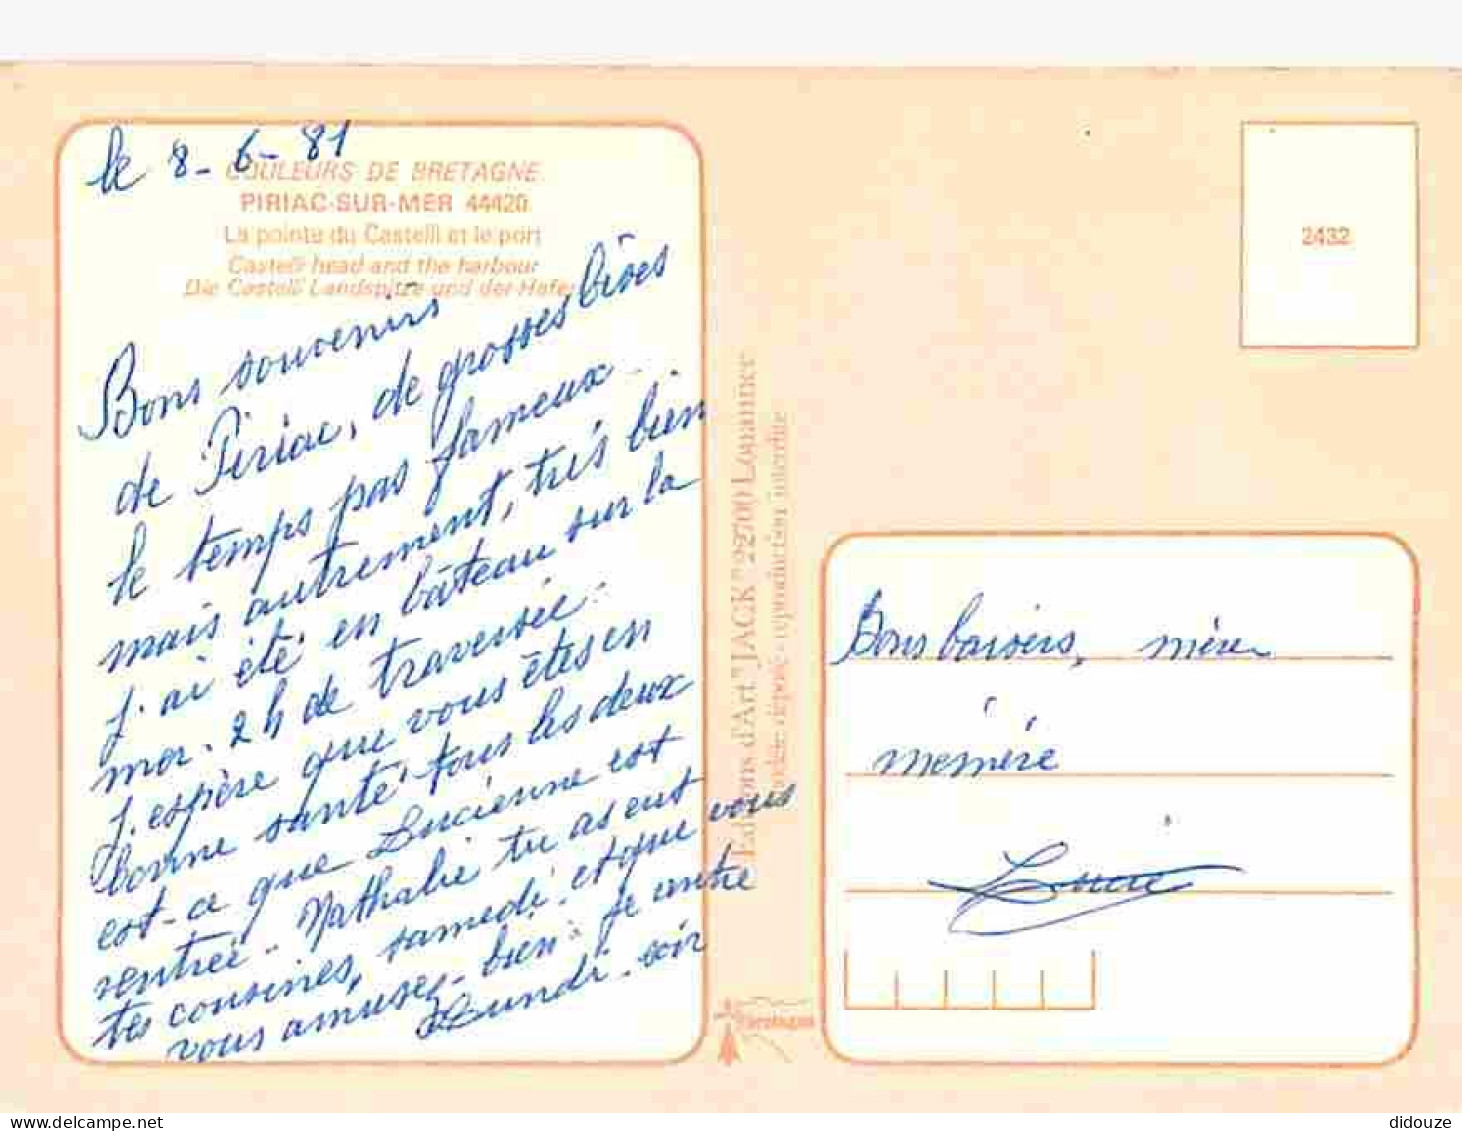 le 8-6-81
COULEURS DE BRETAGNE
PIRIAC-SUR-MER 44420
La pointe du Castelli et le port
Castelli head and the harbour
Die Castelli Landspitze und der Hafen
Bons souvenirs
de Piriac, de grosses bises
le temps pas fameux..
mais autrement, très bien
j'ai été en bâteau sur la
mer. 2h de traversée.
j'espère que vous êtes en
bonne santé tous les deux
est-ce que Lucienne est
rentrée.. Nathalie tu as eut
tes cousines, samedi. et que vous
vous amusez-bien. je rentre
Lundi-soir
Editions d'Art "JACK" 22700 Louannec
Modèle déposé - reproduction interdite
Bretagne
2432
Bons baisers,
mémère
didouze